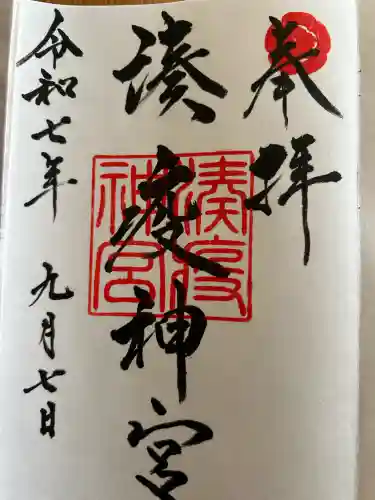 奉拝
湊疫神宮
湊疫神宮
令和七年 九月七日